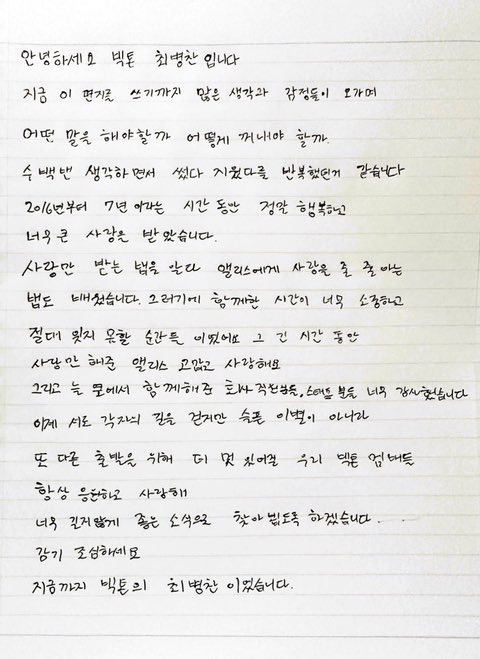 안녕하세요 빅톤 최병찬입니다
지금 이 편지를 쓰기까지 많은 생각과 감정들이 오가며
어떤 말을 해야할까 어떻게 꺼내야 할까.
수백번 생각하면서 썼다 지웠다를 반복했던거 같습니다
2016년부터 7년이라는 시간동안 정말 행복하고
너무 큰 사랑을 받았습니다.
사랑만 받는 법을 알다 앨리스에게 사랑을 줄 줄 아는
법도 배웠습니다. 그러기에 함께한 시간이 너무 소중하고
절대 잊지 못할 순간들 이었어요 그 긴 시간 동안
사랑만 해준 앨리스 고맙고 사랑해요
그리고 늘 옆에서 함께해준 회사 직원분들, 스태프 분들 너무 감사했습니다
이제 서로 각자의 길을 걷지만 슬픈 이별이 아니라
또 다른 출발을 위해 더 멋있어질 우리 빅톤 멤버들
항상 응원하고 사랑해
너무 길지않게 좋은 소식으로 찾아 뵙도록 하겠습니다.
감기 조심하세요
지금까지 빅톤의 최병찬 이었습니다.